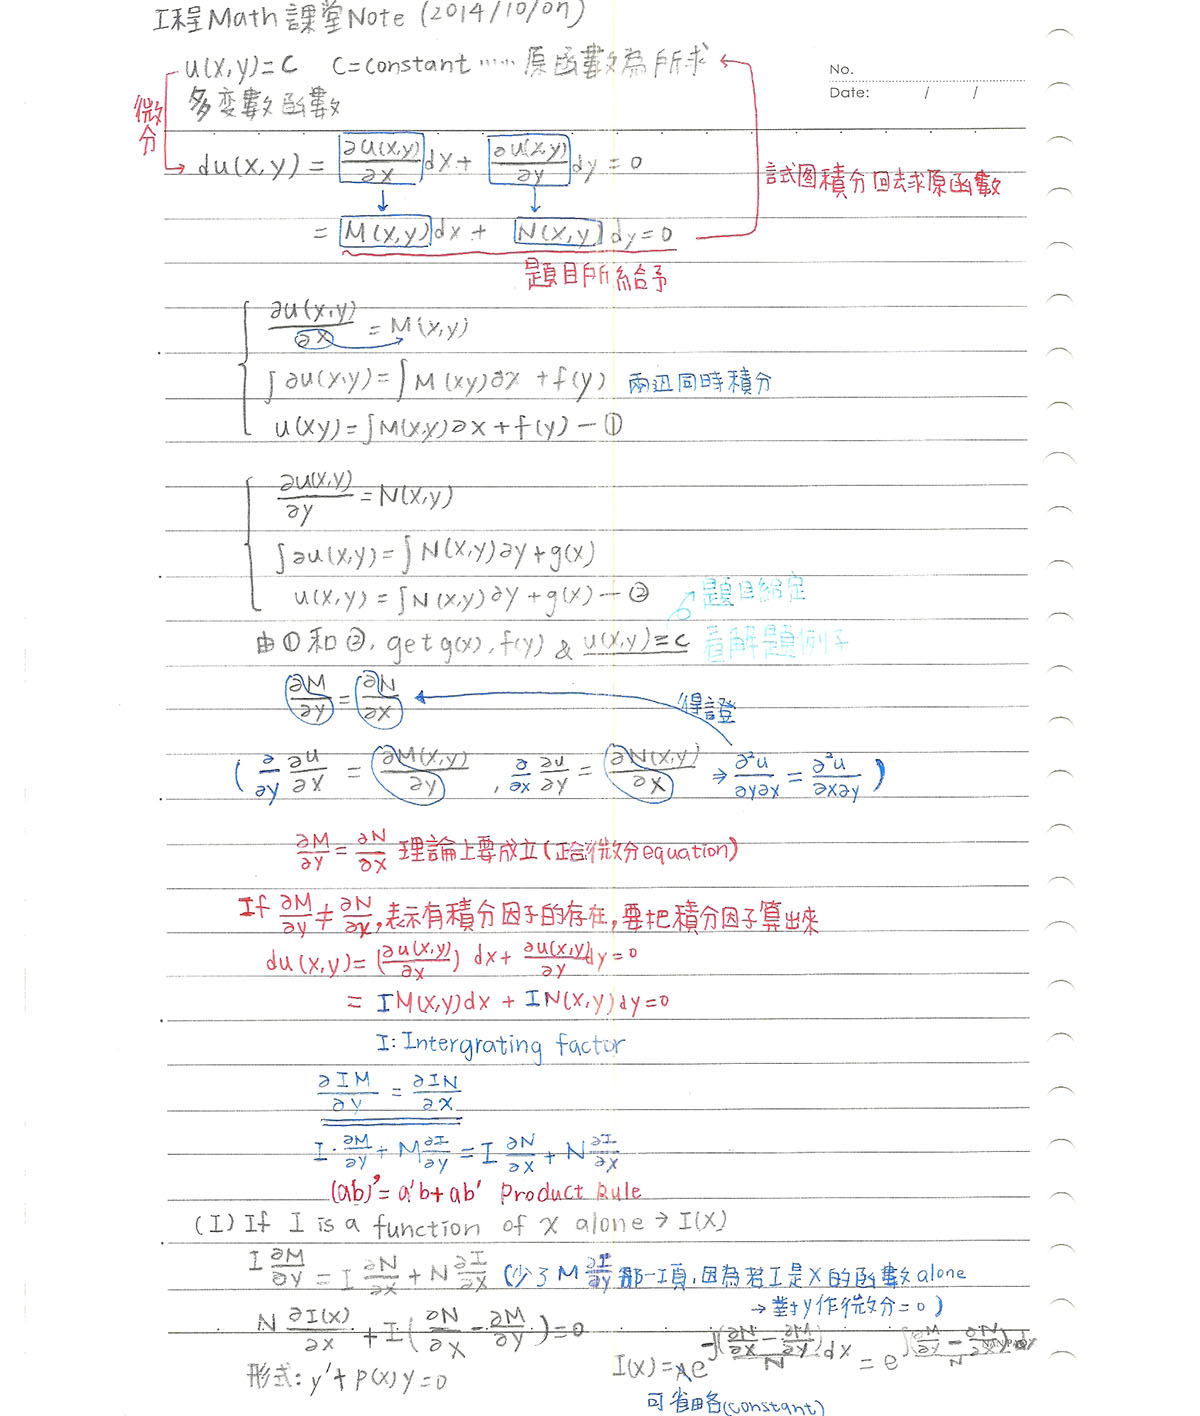 工程Math 課堂Note (2014/10/07)
u(x,y)=c c=constant ...... 原函數為所求
No.
多变數函數
Date: / /
微分
du(x,y) = ∂u(x,y)/∂x dx + ∂u(x,y)/∂y dy = 0
試图積分回去求原函數
= M(x,y)dx + N(x,y)dy=0
題目所給予
∂u(x,y)/∂x = M(x,y)
∫∂u(x,y)=∫M(xy)∂x +f(y) 兩边同時積分
u(xy)=∫M(x,y)∂x+f(y) — ①
∂u(x,y)/∂y = N(x,y)
∫∂u(x,y)=∫N(x,y)∂y+g(x)
u(x,y)=∫N(x,y)∂y+g(x) — ② 題目給定
由①和②, get g(x), f(y) & u(x,y)=c 看解題例子
∂M/∂y = ∂N/∂x 得證
(∂/∂y ∂u/∂x = ∂M(x,y)/∂y , ∂/∂x ∂u/∂y = ∂N(x,y)/∂x ⇒ ∂²u/∂y∂x = ∂²u/∂x∂y)
∂M/∂y = ∂N/∂x 理論上要成立(正合微分equation)
If ∂M/∂y ≠ ∂N/∂x, 表示有積分因子的存在, 要把積分因子算出來
du(x,y)= (∂u(x,y)/∂x) dx+ ∂u(x,y)/∂y dy=0
= IM(x,y)dx + IN(x,y)dy=0
I: Intergrating factor
∂IM/∂y = ∂IN/∂x
I·∂M/∂y + M∂I/∂y = I ∂N/∂x + N ∂I/∂x
(ab)'=a'b+ab' Product Rule
(I) If I is a function of x alone → I(x)
I ∂M/∂y = I ∂N/∂x + N ∂I/∂x (少了 M ∂I/∂y 那一項, 因為若I是X的函數alone
→ 對y作微分=0)
N ∂I(x)/∂x + I(∂N/∂x - ∂M/∂y)=0
I(x)=Ae^(-∫(∂N/∂x - ∂M/∂y)/N dx) = e^(∫(∂M/∂y - ∂N/∂x)/N dx)
形式: y'+p(x)y=0
可省略(constant)